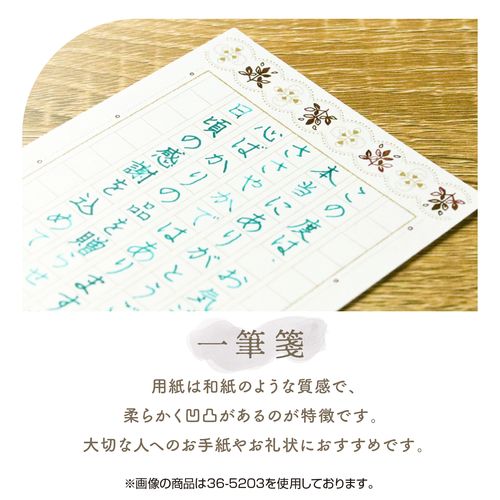 この度は、お気
本当にありがとうご
ささやかではあります
心ばかりの品を贈らせ
日頃の感謝を込めて
一筆箋
用紙は和紙のような質感で、
柔らかく凹凸があるのが特徴です。
大切な人へのお手紙やお礼状におすすめです。
※画像の商品は36-5203を使用しております。